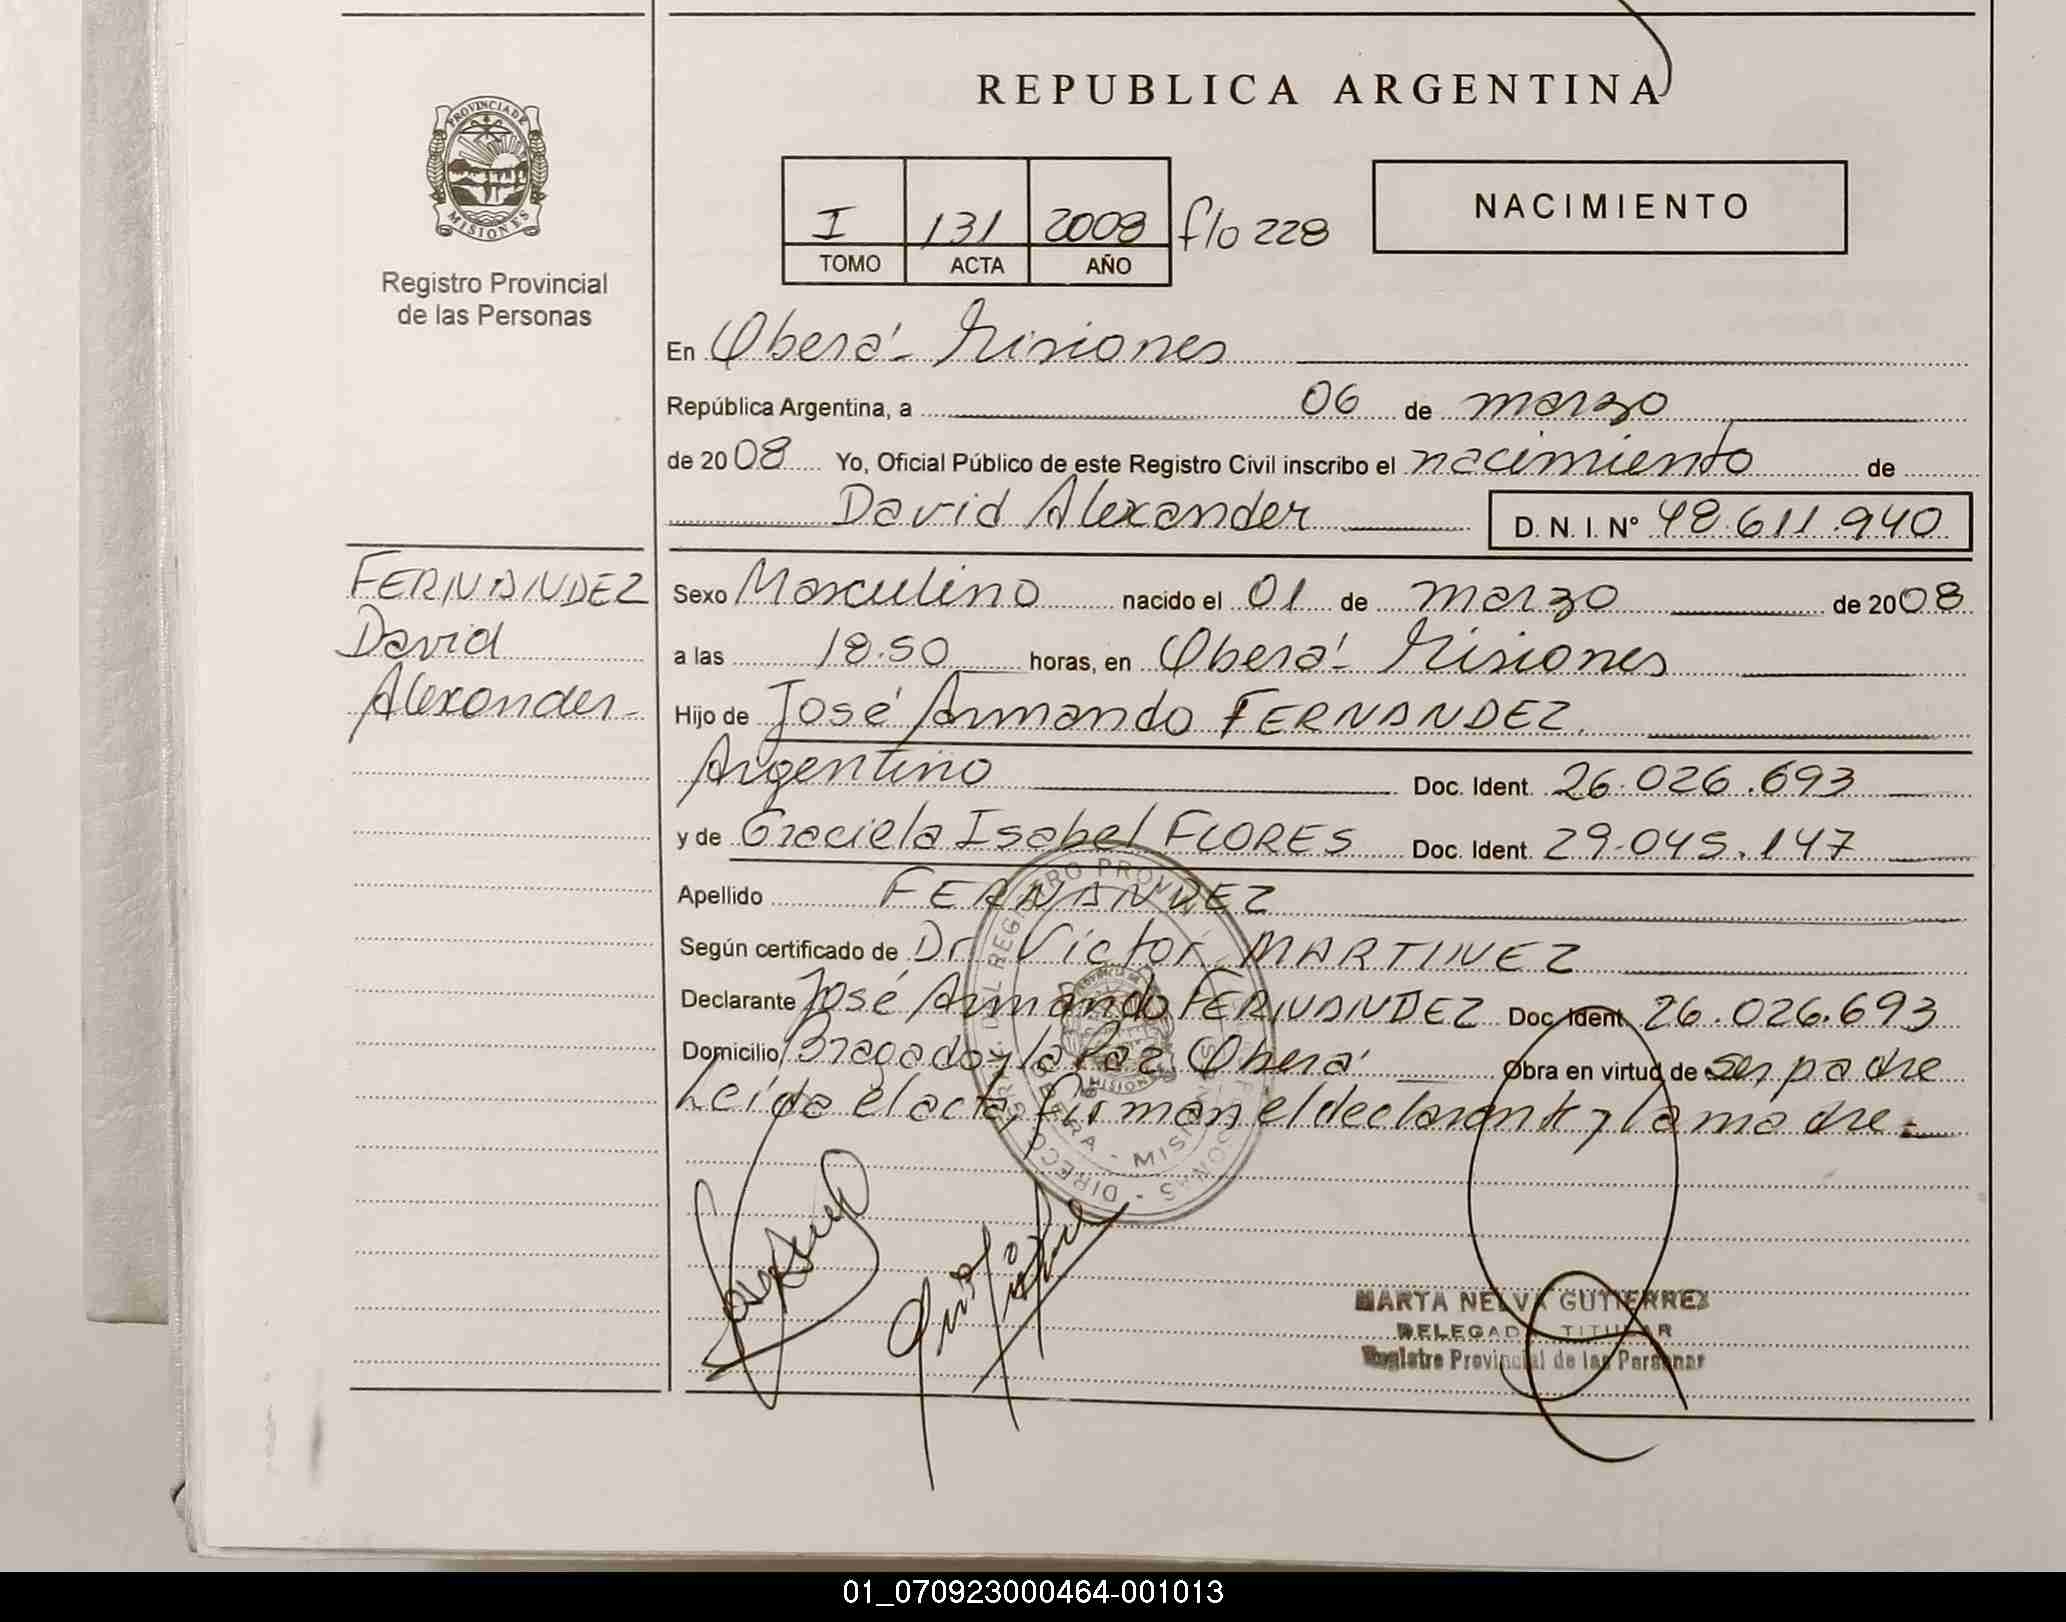 REPUBLICA ARGENTINA
PROVINCIA DE
MISIONES
Registro Provincial
de las Personas
I 131 2008 f/o 228
TOMO ACTA AÑO
NACIMIENTO
En Oberá - Misiones
República Argentina, a 06 de marzo
de 2008 Yo, Oficial Público de este Registro Civil inscribo el nacimiento de
David Alexander D. N. I. N° 48.611.940
FERNANDEZ
David
Alexander -
Sexo Masculino nacido el 01 de marzo de 2008
a las 18.50 horas, en Oberá - Misiones
Hijo de José Armando FERNANDEZ.
Argentino Doc. Ident. 26.026.693
y de Graciela Isabel FLORES Doc. Ident. 29.045.147
Apellido FERNANDEZ
Según certificado de Dr. Victor MARTINEZ
Declarante José Armando FERNANDEZ Doc. Ident. 26.026.693
Domicilio Bragado y la Paz Oberá Obra en virtud de ser padre
Leída el acta, firman el declarante y la madre.-
MARTA NELVA GUTIERREZ
DELEGADA TITULAR
Registro Provincial de las Personas
01_070923000464-001013